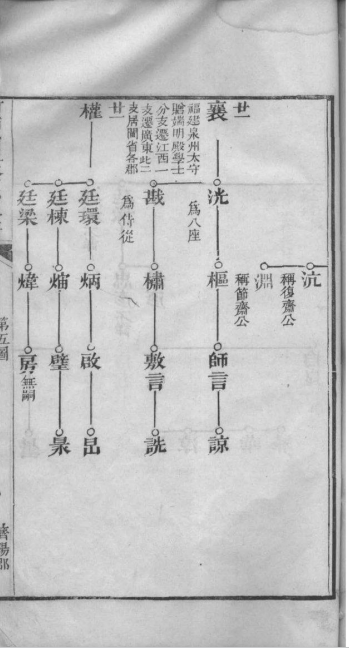 沆
稱復齋公
淵
稱節齋公
廿一
襄
福建泉州太守
贈端明殿學士
分支遷江西一
支遷廣東此二
支居閩省各郡
洸
為八座
樞
師言
諒
戡
為侍從
橚
敷言
詵
廿一
權
廷環
炳
啟
昌
廷棟
煵
璧
㬎
廷梁
煒
房
無嗣
第五圖
濟陽郡